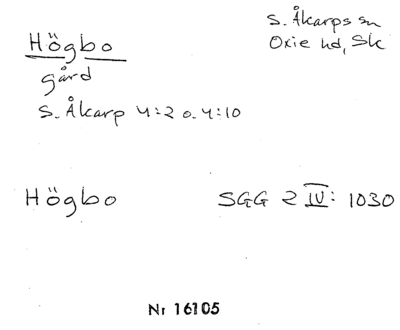 S. Åkarps sn
Oxie hd, Sk
Högbo
gård
S. Åkarp 4:2 o. 4:10
Högbo SGG 2 IV: 1030
Nr 16105